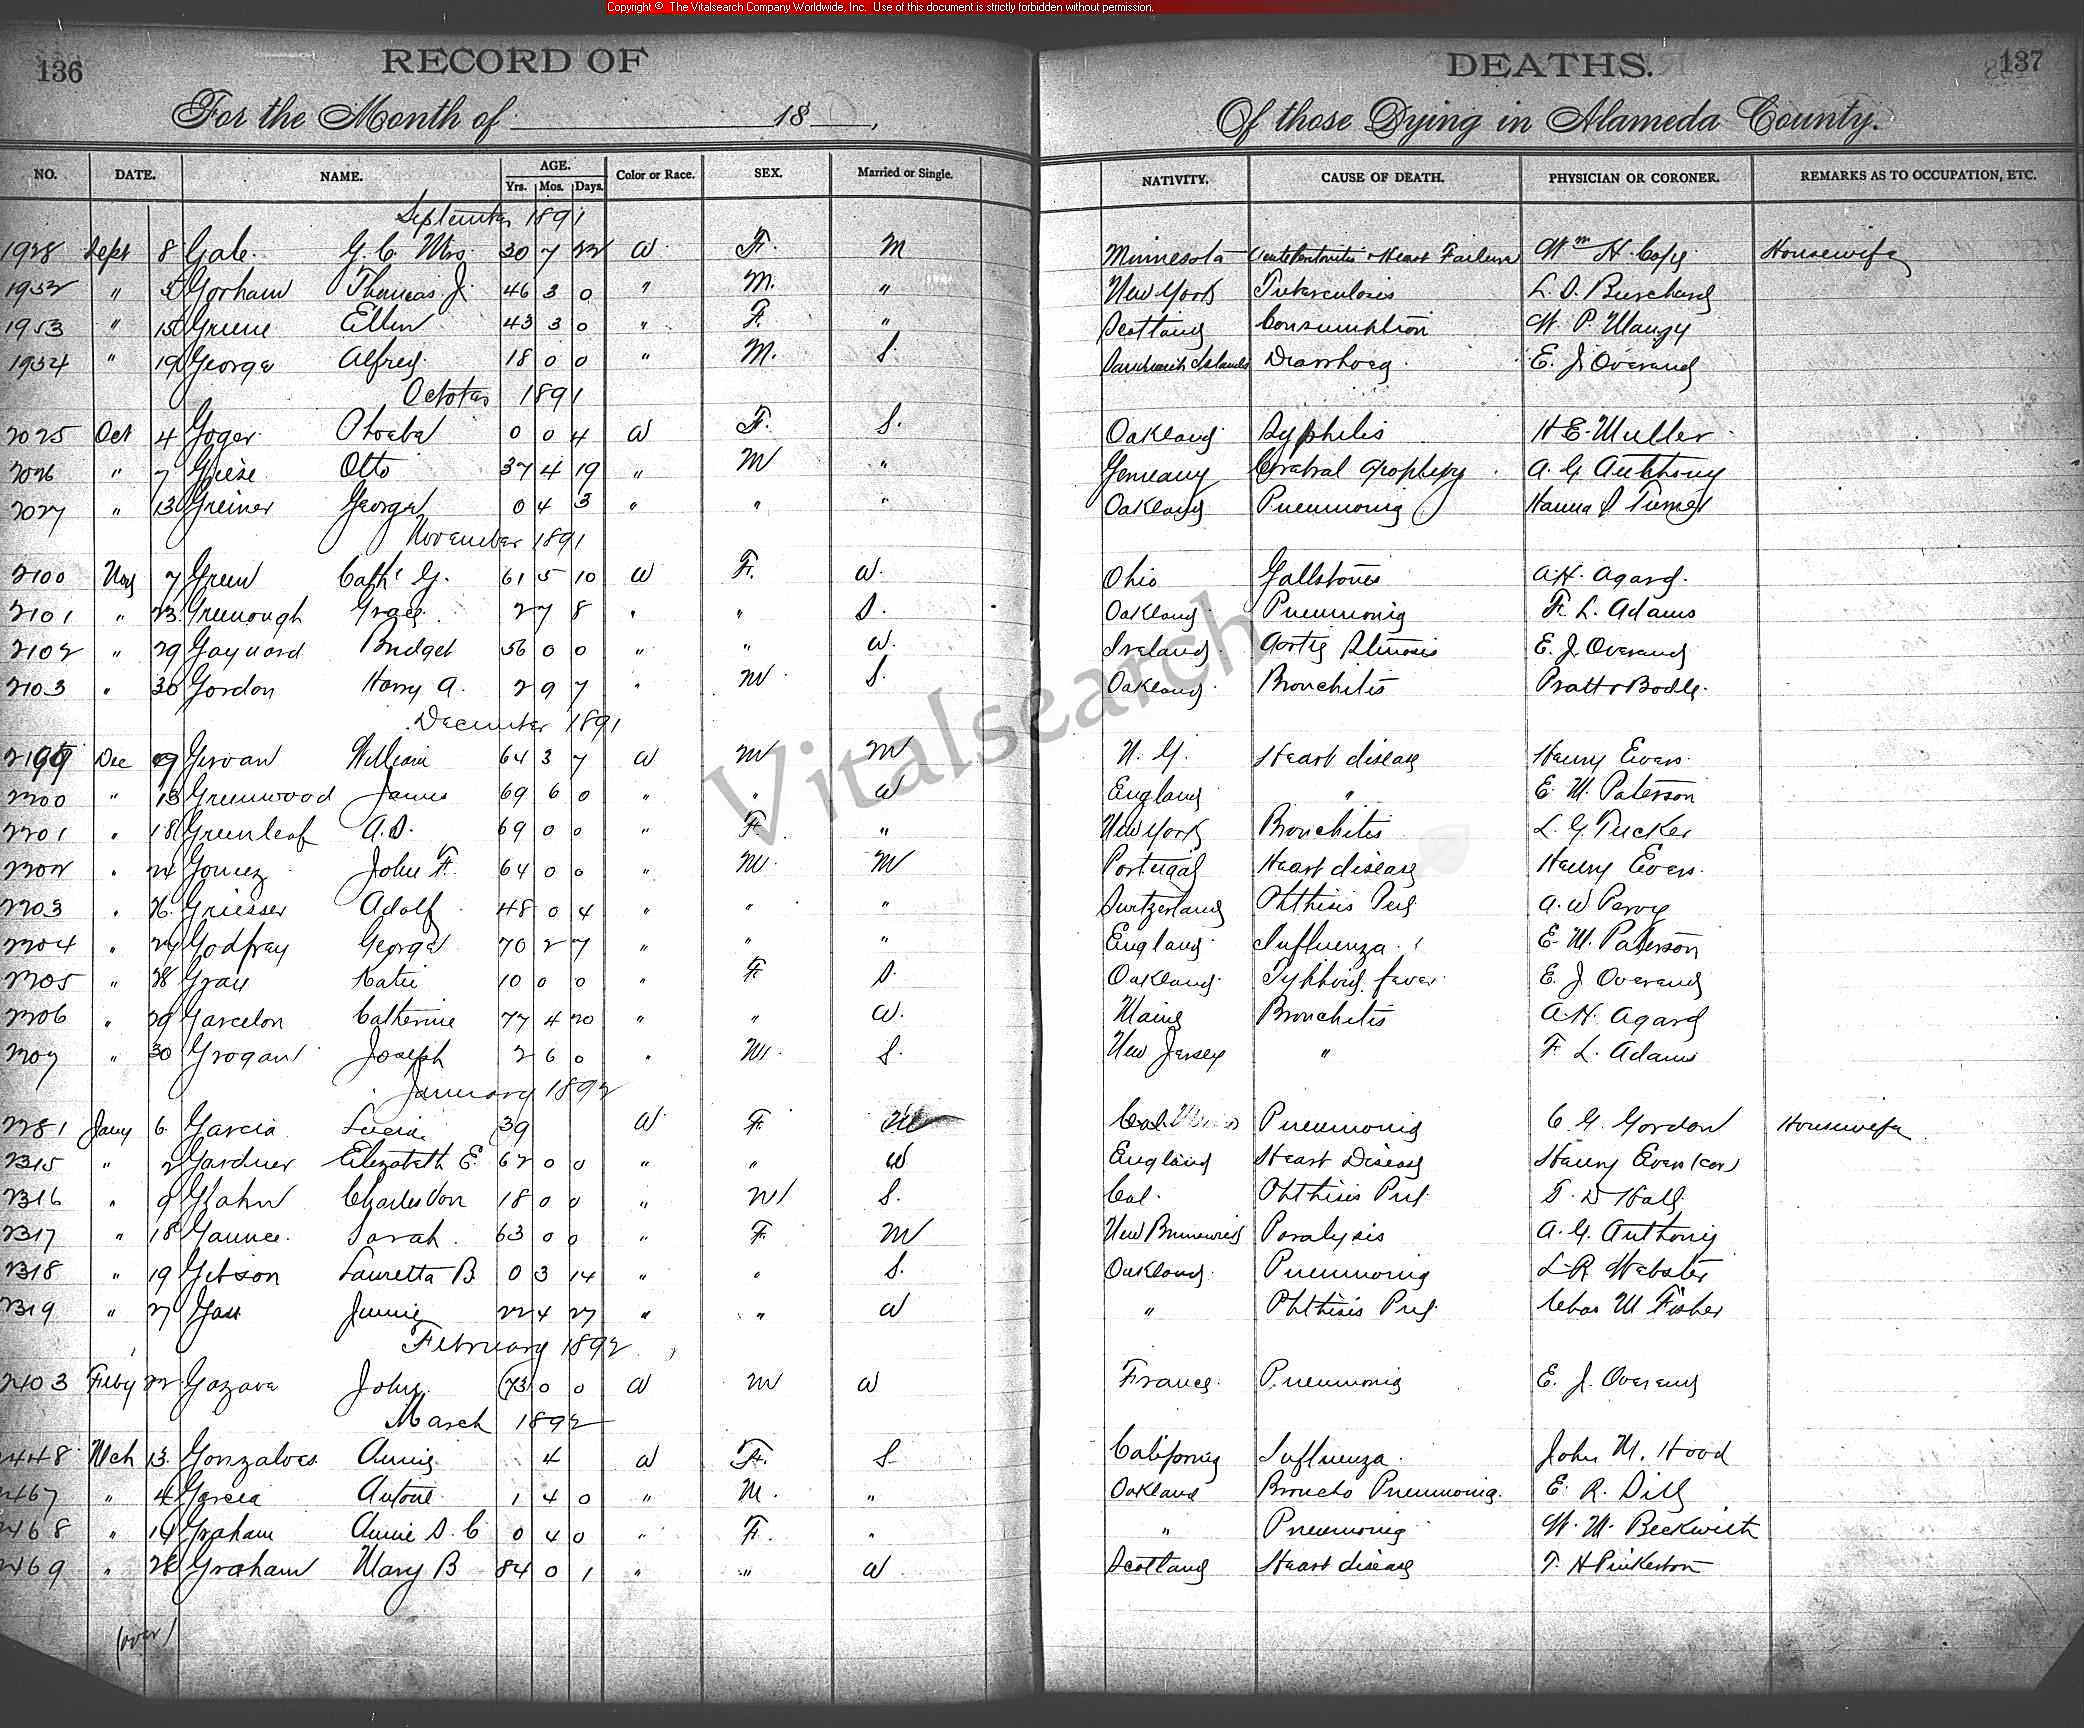 Copyright © The Vitalsearch Company Worldwide, Inc. Use of this document is strictly forbidden without permission.
136 RECORD OF DEATHS. 137
For the Month of 18 , Of those Dying in Alameda County.
NO. DATE. NAME. AGE. Yrs. Mos. Days. Color or Race. SEX. Married or Single. NATIVITY. CAUSE OF DEATH. PHYSICIAN OR CORONER. REMARKS AS TO OCCUPATION, ETC.
September 1891
1928 Sept 8 Gale G. C. Mrs 30 7 22 W F. M Minnesota Heart Failure Wm H. Housewife
1952 " 5 Gorham Thomas J. 46 3 0 " M. " New York Tuberculosis L. S. Burchard
1953 " 15 Greene Ellen 43 3 0 " F. " Scotland Consumption W P.
1954 " 19 George Alfred 18 0 0 " M. S. Sandwich Islands Diarrhoea E. J. Overend
October 1891
2025 Oct 4 Goger Phoebe 0 0 4 W F. S. Oakland Syphilis H E. Muller
2026 " 7 Giese Otto 37 4 19 " M " Germany Cerebral Apoplexy A. G Anthony
2027 " 13 Greiner George 0 4 3 " " " Oakland Pneumonia
November 1891
2100 Nov 7 Green Cath. G. 61 5 10 W F. W. Ohio Gallstones A. H. Agard.
2101 " 23 Greenough Grace 2 7 8 " " S. Oakland Pneumonia F. L. Adams
2102 " 29 Gaynard Bridget 56 0 0 " " W. Ireland Aortic Stenosis E. J. Overend
2103 " 30 Gordon Harry A. 2 9 7 " M S. Oakland Bronchitis Pratt & Bodle.
December 1891
2199 Dec 9 Girvan William 64 3 7 W M M N. Y. Heart disease Henry Evers
2200 " 13 Greenwood James 69 6 0 " " W England " E. M. Paterson
2201 " 18 Greenleaf A. S. 69 0 0 " F. " New York Bronchitis L. G. Tucker
2202 " Gomez John F. 64 0 0 " M. M Portugal Heart disease Henry Evers.
2203 " 26 Griesser Adolf 48 0 4 " " " Switzerland Phthisis Pul A. W
2204 " Godfrey George 70 2 7 " " " England Influenza E. M. Paterson
2205 " 28 Gray Katie 10 0 0 " F S. Oakland Typhoid fever E. J Overend
2206 " 29 Garcelon Catherine 77 4 20 " " W. Maine Bronchitis A. H. Agard
2207 " 30 Grogan Joseph 2 6 0 " M. S. New Jersey " F. L. Adams
January 1892
2281 Jany 6 Garcia Lucia 39 W F. M Cal Pneumonia C. G. Gordon Housewife
2315 " 2 Gardner Elizabeth E. 62 0 0 " " W England Heart Disease Henry Evers (Cor)
2316 " 9 Glahn Charles Von 18 0 0 " M S. Cal. Phthisis Pul. S. D Hall
2317 " 18 Gaunce Sarah 63 0 0 " F. M New Brunswick Paralysis A. G. Anthony
2318 " 19 Gibson Lauretta B 0 3 14 " " S. Oakland Pneumonia L. R. Webster
2319 " 27 Jennie 22 4 27 " " W " Phthisis Pul. Chas M Fisher
February 1892
2403 Feby 22 Gazave John (73) 0 0 W M W France Pneumonia E. J. Overend
March 1892
2448 Mch 13 Gonzalves Annie 4 W F. S California Influenza. John M. Hood
2467 " 4 Garcia Antone 1 4 0 " M. " Oakland Broncho Pneumonia. E. R. Dill
2468 " 14 Graham Annie S. C 0 4 0 " F. " " Pneumonia W. M. Beckwith
2469 " 26 Graham Mary B 84 0 1 " " W Scotland Heart disease T. H Pinkerton
(over)
Vitalsearch